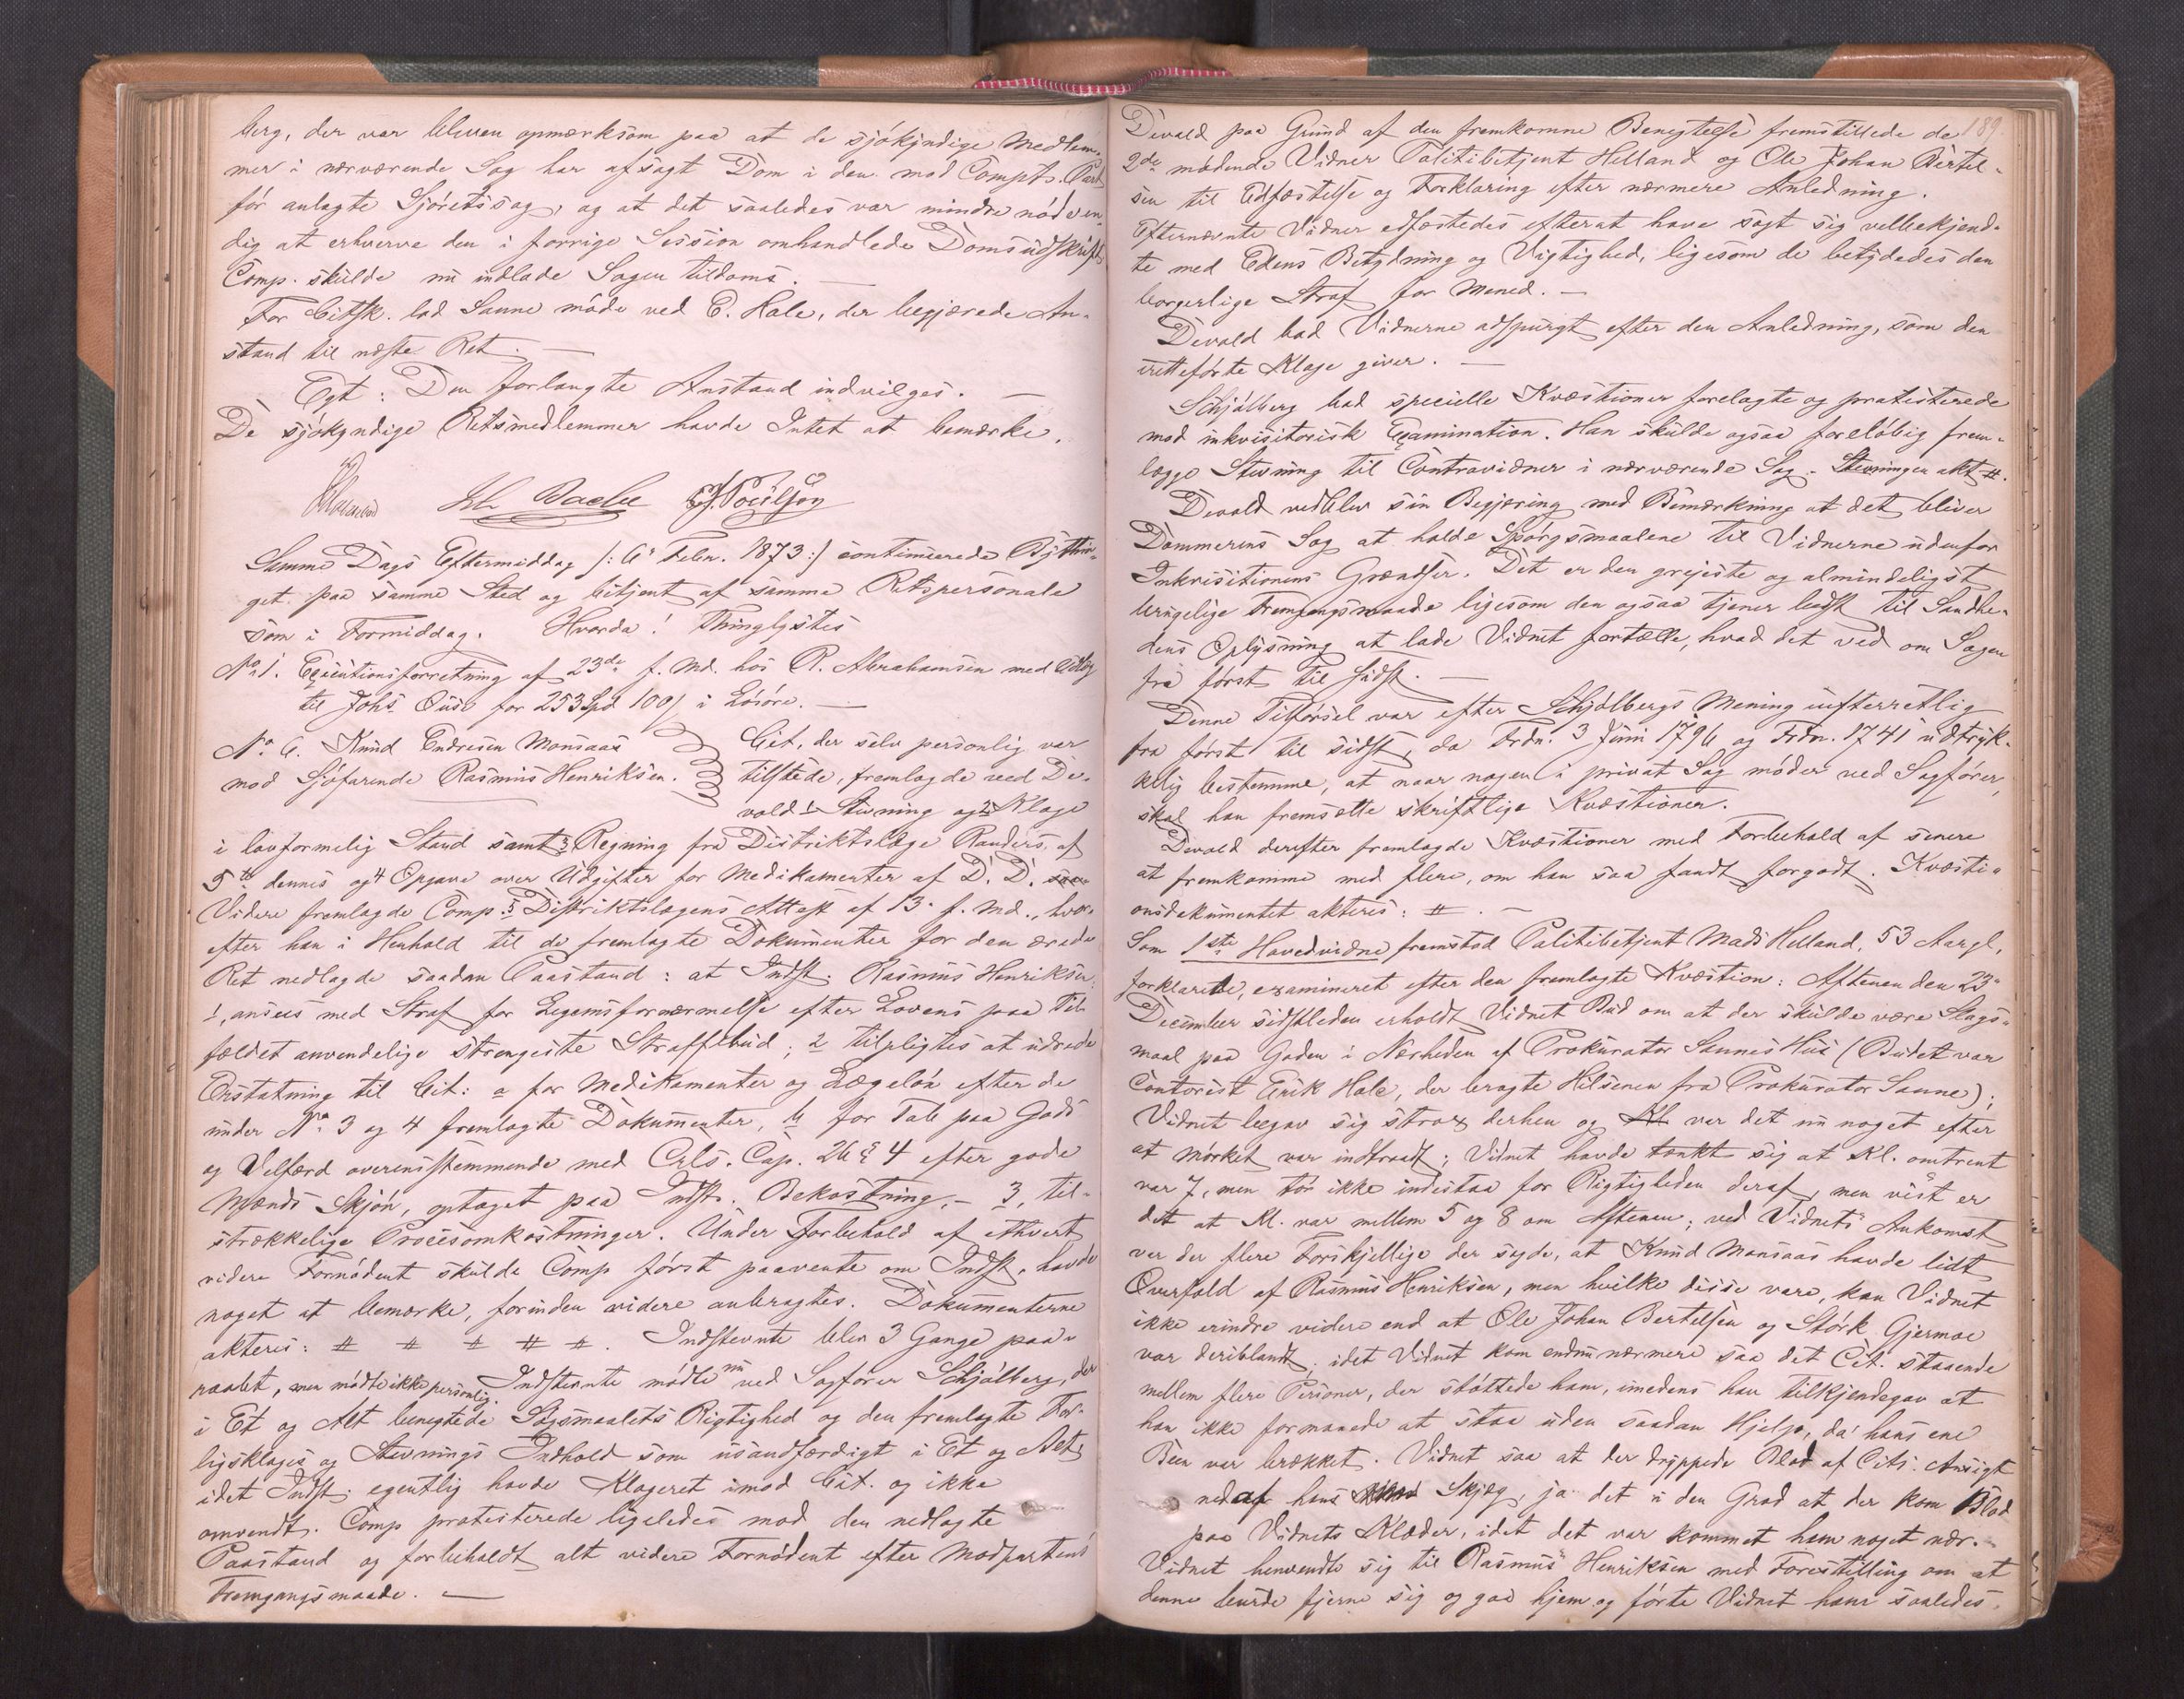 berg, der var bleven opmærksom paa at de sjókyndige Medlem-
mer i nærværende Sag har afsagt Dom i den mod Compts. Part
fór anlagte Sjóretssag, og at det saaledes var mindre nódven-
dig at erhverve den i forrige Session omhandlede Domsudskrift
Comp. skulde nu indlade Sagen tildoms. —
For Citsk. lod Sanne móde ved E. Hale, der begjærede An-
stand til næste Ret. —
Egt: Den forlangte Anstand indvilges. —
De sjókyndige Retsmedlemmer havde Intet at bemærke.
Bache J. Poulson
Samme Dags Eftermiddag /: 6' Febr. 1873:/ continuerede Bythin-
get paa samme Sted og betjent af samme Retspersonale
som i Formiddag. Hvorda! Thinglystes
No 1. Executionsforretning af 23de f. Md. hos P. Abrahamsen med Udlæg
til Johs Ouse for 253 Spd 100 / i Lósóre. —
No 6. Knud Endresen Monsaas
mod Sjófarende Rasmus Henriksen.
Cit, der selv personlig var
tilstede, fremlagde ved De-
vold 1 Stevning og 2 Klage
i lovformelig Stand samt 3 Regning fra Distriktslæge Randers af
5te dennes og 4 Opgave over Udgifter for Medikamenter af D. D.
Videre fremlagde Comp. 5 Distriktslægens Attest af 13' f. Md., hvor-
efter han i Henhold til de fremlagte Dokumenter for den ærede
Ret nedlagde saadan Paastand: at Indst. Rasmus Henriksen
1, ansees med Straf for Legemsfornærmelse efter Lovens paa Til-
fældet anvendelige strengeste Straffebud; 2 tilpligtes at udrede
Erstatning til Cit: a for Medikamenter og Lægelón efter de
under No 3 og 4 fremlagte Dokumenter, b for Tab paa Gods
og Velfærd overensstemmende med Crls. Cap. 26 § 4 efter gode
Mænds Skjón, optaget paa Indst. Bekostning, - 3, til-
strækkelige Procesomkostninger. Under Forbehold af ethvert
videre Fornódent skulde Comp fórst paavente om Indst. havde
noget at bemærke, forinden videre anbragtes. Dokumenterne
akteres: # # # # #. Indstevnte blev 3 Gange paa-
raabt, men módte ikke personlig. Indstevnte módte nu ved Sagfórer Schjólberg, der
i Et og Alt benegtede Sógsmaalets Rigtighed og den fremlagte For-
ligsklages og Stevnings Indhold som usandfærdigt i Et og Alt,
idet Indst. egentlig havde Klageret imod Cit. og ikke
omvendt. Comp protesterede ligeledes mod den nedlagte
Paastand og forbeholdt alt videre Fornódent efter Modpartens
Fremgangsmaade. —
189
Devold paa Grund af den fremkomne Benegtelse fremstillede de
2de módende Vidner Politibetjent Helland og Ole Johan Bertel-
sen til Edfæstelse og Forklaring efter nærmere Anledning.
Efternævnte Vidner edfæstedes efterat have sagt sig velbekjend-
te med Edens Betydning og Vigtighed, ligesom de betydedes den
borgerlige Straf for Mened. —
Devold bad Vidnerne adspurgt efter den Anledning, som den
irettefórte Klage giver. —
Schjólberg bad specielle Kvæstioner forelagte og protesterede
mod inkvisitorisk Examination. Han skulde ogsaa forelóbig frem-
lægge Stevning til Contravidner i nærværende Sag. Stevningen akt #.
Devold vedblev sin Begjæring med Bemærkning at det bliver
Dommerens Sag at holde Spórgsmaalene til Vidnerne udenfor
Inkvisitionens Grændser. Det er den grejeste og almindeligst
brugelige Fremgangsmaade ligesom den ogsaa tjener bedst til Sandhe-
dens Oplysning at lade Vidnet fortælle, hvad det ved om Sagen
fra fórst til sidst. —
Denne Tilfórsel var efter Schjólbergs Mening uefterretlig
fra fórst til sidst, da Frdn. 3 Juni 1796 og Frdn. 1741 udtryk-
kelig bestemme, at naar nogen i privat Sag móder ved Sagfórer,
skal han fremsætte skriftlige Kvæstioner.
Devold derefter fremlagde Kvæstioner med Forbehold af senere
at fremkomme med flere, om han saa fandt forgodt. Kvæsti-
onsdokumentet akteres: #. —
Som 1ste Hovedvidne fremstod Politibetjent Mads Helland, 53 Aar gl,
forklarede, examineret efter den fremlagte Kvæstion: Aftenen den 23'
December sidstleden erholdt Vidnet Bud om at der skulde være Slags-
maal paa Gaden i Nærheden af Prokurator Sannes Hus (Budet var
Contorist Erik Hole, der bragte Hilsenen fra Prokurator Sanne);
Vidnet begav sig strax derhen og Kl. var det nu noget efter
at Mórket var indtraadt; Vidnet havde tænkt sig at Kl. omtrent
var 7, men tór ikke indestaa for Rigtigheden deraf, men vist er
det at Kl. var mellem 5 og 8 om Aftenen; ved Vidnets Ankomst
var der flere Forskjellige der sagde, at Knud Monsaas havde lidt
Overfald af Rasmus Henriksen, men hvilke disse vare, kan Vidnet
ikke erindre videre end at Ole Johan Bertelsen og Stórk Gjermoe
var deriblandt; idet Vidnet kom endnu nærmere saa det Cit. staaende
mellem flere Personer, der stóttede ham, imedens han tilkjendegav at
han ikke formaaede at staa uden saadan Hjelp, da hans ene
Been var brækket. Vidnet saa at der dryppede Blod af Cits. Ansigt
ned af hans Skjæg, ja det i den Grad at der kom Blod
paa Vidnets Klæder, idet det var kommet ham noget nær.
Vidnet henvendte sig til Rasmus Henriksen med Forestilling om at
denne burde fjerne sig og gaa hjem og fórte Vidnet ham saaledes